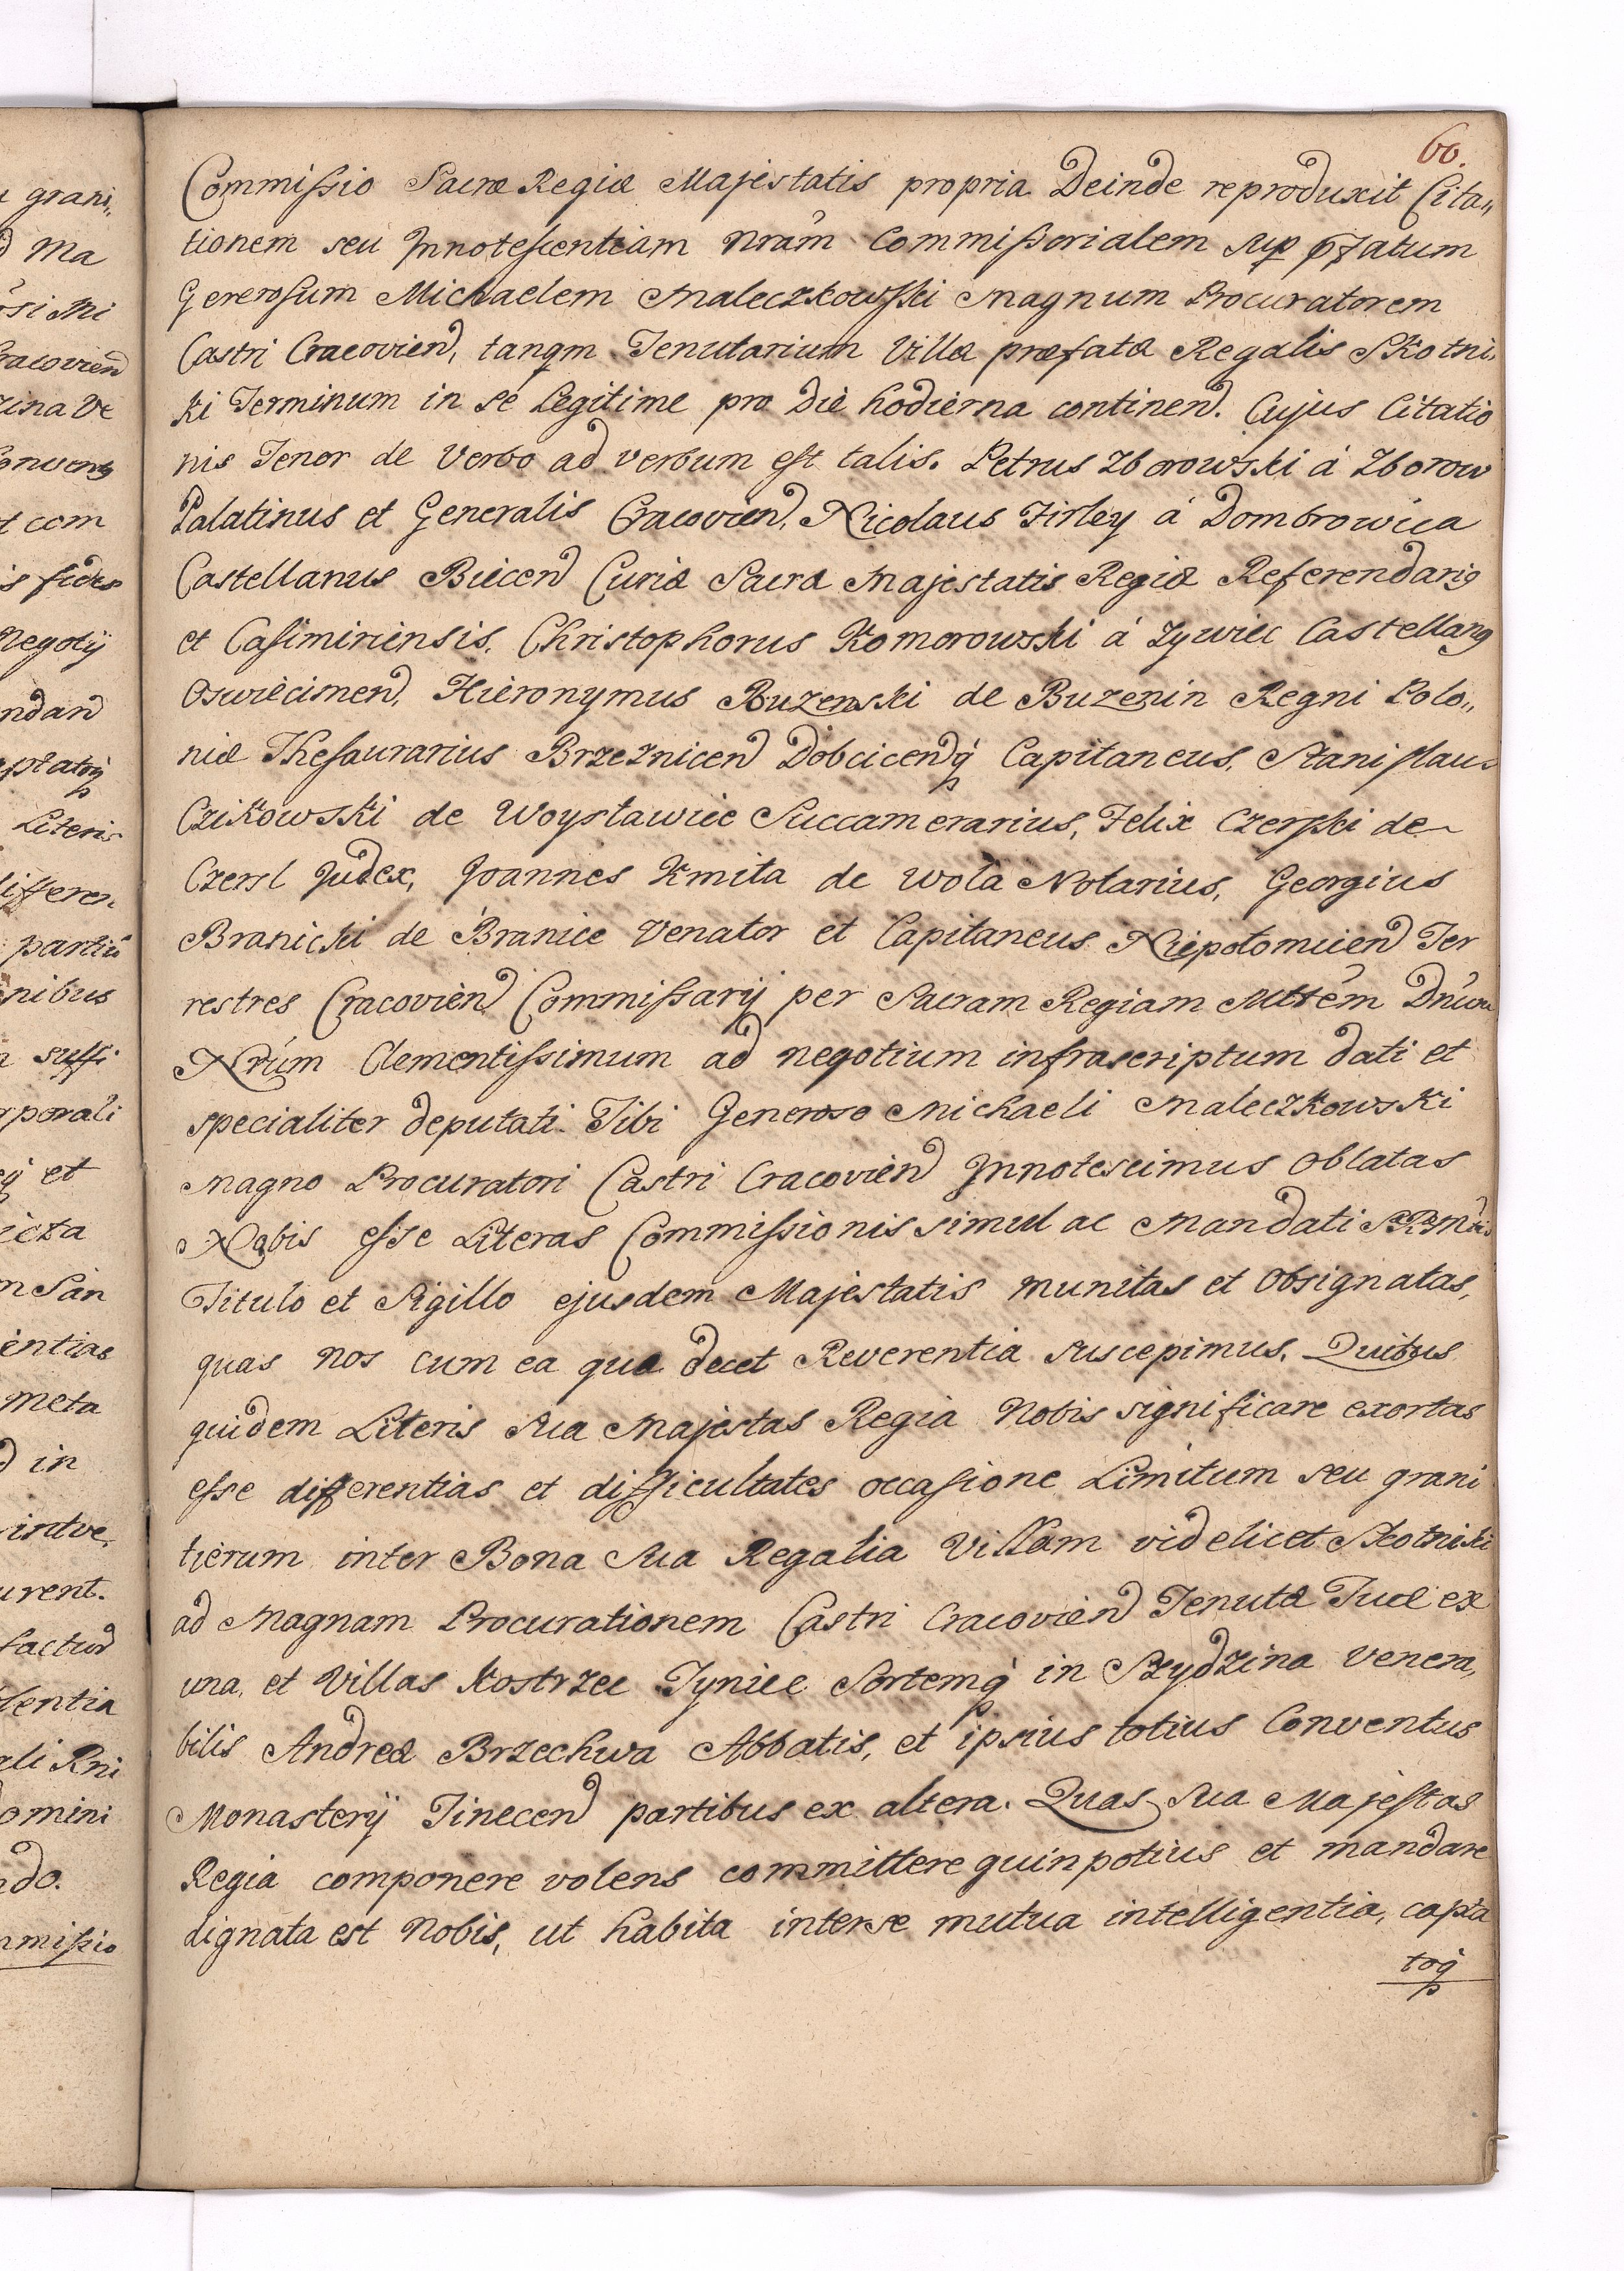 60.
Commissio Sacræ Regiæ Majestatis propria. Deinde reproduxit Cita„
tionem seu Innotescentiam Nrám Commissorialem sup p̃fatum
Generosum Michaelem Maleczkowski Magnum Procuratorem
Castri Cracovien, tanqm Tenutarium Villæ præfatæ Regalis Skotni,
ki Terminum in se Legitime pro Die hodierna continen. Cujus Citatio
nis Tenor de Verbo ad verbum est talis. Petrus Zborowski á Zborow
Palatinus et Generalis Cracovien, Nicolaus Firley á Dombrowica
Castellanus Biecen Curiæ Sacræ Majestatis Regiæ Referendarig
et Casimiriensis. Christophorus Komorowski á Zywiec Castellang
Oswiecimen, Hieronymus Buzenski de Buzenin Regni Polo„
niæ Thesaurarius Brzeznicen Dobcicenq́ Capitaneus, Stanislaus
Czikowski de Woysławice Succamerarius, Felix Czerski de
Czersl Judex, Joannes Kmita de Wola Notarius, Georgius
Branicki de Branice Venator et Capitaneus Niepołomicien Ter
restres Cracovien Commissarij per Sacram Regiam Mttém Dnum
Nrúm Clementissimum ad negotium infrascriptum dati et
specialiter deputati. Tibi Generoso Michaeli Maleczkowski
Magno Procuratori Castri Cracovien Innotescimus Oblatas
Nobis esse Literas Commissionis simul ac Mandati SRMtis
Titulo et Sigillo ejusdem Majestatis munitas et Obsignatas,
quas nos cum ea qua decet Reverentia suscepimus. Quibus
quidem Literis sua Majestas Regia Nobis significare exortas
esse differentias et difficultates occasione Limitum seu grani
tierum inter Bona sua Regalia Villam videlicet Skotniki
ad Magnam Procurationem Castri Cracovien Tenutæ Tuæ ex
una, et Villas Kostrzec Tyniec Sortemq́ in Szydzina Venera,
bilis Andreæ Brzechwa Abbatis, et ipsius totius Conventus
Monasterij Tinecen partibus ex altera. Quas sua Majestas
Regia componere volens committere quinpotius et mandare
dignata est Nobis, ut habita interse mutua intelligentia, capta
toq́